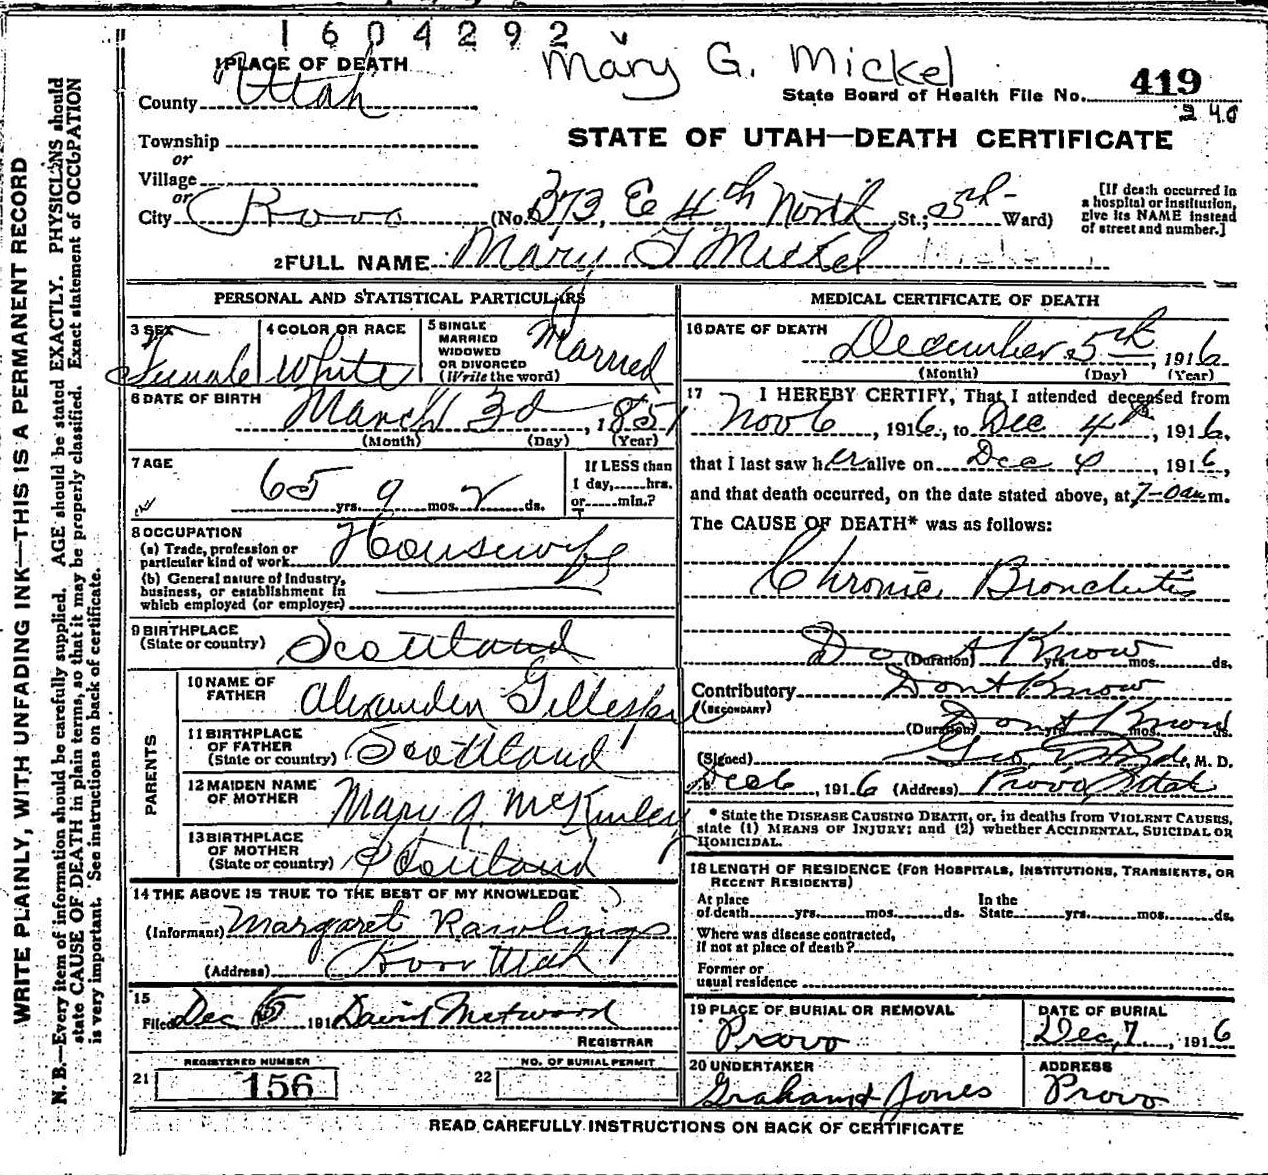 1 6 0 4 2 9 2
Mary G. Mickel
1 PLACE OF DEATH
County Utah
State Board of Health File No. 419
240
STATE OF UTAH—DEATH CERTIFICATE
Township
or
Village
or
City Provo (No. 373, E 4th North St.; 5th Ward)
[If death occurred in a hospital or institution, give its NAME instead of street and number.]
2 FULL NAME Mary G Mickel
PERSONAL AND STATISTICAL PARTICULARS
3 SEX Female
4 COLOR OR RACE White
5 SINGLE MARRIED WIDOWED OR DIVORCED (Write the word) Married
6 DATE OF BIRTH March 3d, 1851
(Month) (Day) (Year)
7 AGE 65 yrs. 9 mos. 2 ds.
If LESS than 1 day,......hrs. or......min.?
8 OCCUPATION
(a) Trade, profession or particular kind of work Housewife
(b) General nature of Industry, business, or establishment in which employed (or employer)
9 BIRTHPLACE (State or country) Scottland
PARENTS
10 NAME OF FATHER Alexander Gillespie
11 BIRTHPLACE OF FATHER (State or country) Scottland
12 MAIDEN NAME OF MOTHER Mary A. McKinley
13 BIRTHPLACE OF MOTHER (State or country) Scottland
14 THE ABOVE IS TRUE TO THE BEST OF MY KNOWLEDGE
(Informant) Margaret Rawlings
(Address) Utah
15
Filed Dec 5 191 David
REGISTRAR
REGISTERED NUMBER
21 156
NO. OF BURIAL PERMIT
22
MEDICAL CERTIFICATE OF DEATH
16 DATE OF DEATH December 5th, 1916
(Month) (Day) (Year)
17 I HEREBY CERTIFY, That I attended deceased from
Nov 6, 1916, to Dec 4th, 1916,
that I last saw her alive on Dec 4, 1916,
and that death occurred, on the date stated above, at 7-0am.
The CAUSE OF DEATH* was as follows:
Chronic Bronchitis
Don't Know
(Duration) yrs. mos. ds.
Contributory Dont Know
(SECONDARY)
(Duration) Dont Know yrs. mos. ds.
(Signed) Geo, M. D.
Dec 6, 1916 (Address) Provo Utah
* State the DISEASE CAUSING DEATH, or, in deaths from VIOLENT CAUSES, state (1) MEANS OF INJURY; and (2) whether ACCIDENTAL, SUICIDAL OR HOMICIDAL.
18 LENGTH OF RESIDENCE (FOR HOSPITALS, INSTITUTIONS, TRANSIENTS, OR RECENT RESIDENTS)
At place of death yrs. mos. ds. In the State yrs. mos. ds.
Where was disease contracted, if not at place of death?
Former or usual residence
19 PLACE OF BURIAL OR REMOVAL Provo
DATE OF BURIAL Dec, 7, 1916
20 UNDERTAKER Graham & Jones
ADDRESS Provo
READ CAREFULLY INSTRUCTIONS ON BACK OF CERTIFICATE
WRITE PLAINLY, WITH UNFADING INK—THIS IS A PERMANENT RECORD
N. B.—Every item of information should be carefully supplied. AGE should be stated EXACTLY. PHYSICIANS should
state CAUSE OF DEATH in plain terms, so that it may be properly classified. Exact statement of OCCUPATION
is very important. See instructions on back of certificate.